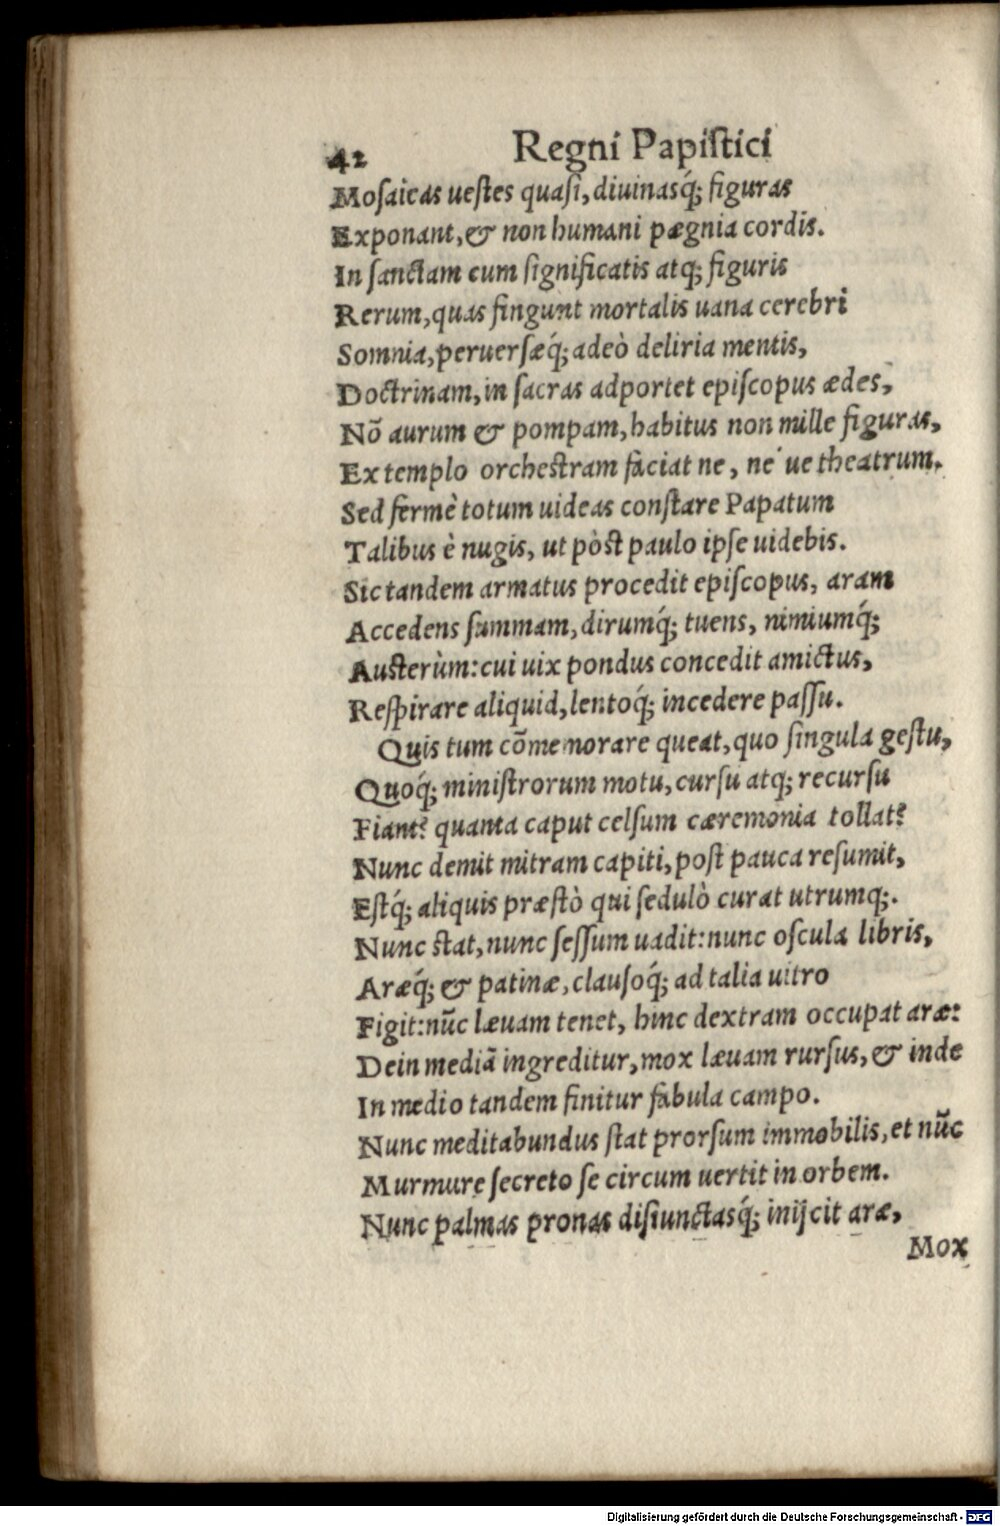 42 Regni Papiſtici
Moſaicas ueſtes quaſi, diuinasq́; figuras
Exponant, & non humani pægnia cordis.
In ſanctam cum ſignificatis atq; figuris
Rerum, quas fingunt mortalis uana cerebri
Somnia, peruerſæq́; adeò deliria mentis,
Doctrinam, in ſacras adportet epiſcopus ædes,
Nō aurum & pompam, habitus non mille figuras,
Ex templo orcheſtram faciat ne, ne ue theatrum.
Sed fermè totum uideas conſtare Papatum
Talibus è nugis, ut pòſt paulo ipſe uidebis.
Sic tandem armatus procedit epiſcopus, aram
Accedens ſummam, dirumq́; tuens, nimiumq́;
Auſterùm: cui uix pondus concedit amictus,
Reſpirare aliquid, lentoq́; incedere paſſu.
Quis tum cōmemorare queat, quo ſingula geſtu,
Quoq́; miniſtrorum motu, curſu atq; recurſu
Fiant? quanta caput celſum cæremonia tollat?
Nunc demit mitram capiti, poſt pauca reſumit,
Eſtq́; aliquis præſtò qui ſedulò curat utrumq;.
Nunc ſtat, nunc ſeſſum uadit: nunc oſcula libris,
Aræq́; & patinæ, clauſoq́; ad talia uitro
Figit: nūc læuam tenet, hinc dextram occupat aræ:
Dein mediā ingreditur, mox læuam rurſus, & inde
In medio tandem finitur fabula campo.
Nunc meditabundus ſtat prorſum immobilis, et nūc
Murmure ſecreto ſe circum uertit in orbem.
Nunc palmas pronas diſiunctasq́; inijcit aræ,
Mox
Digitalisierung gefördert durch die Deutsche Forschungsgemeinschaft - DFG